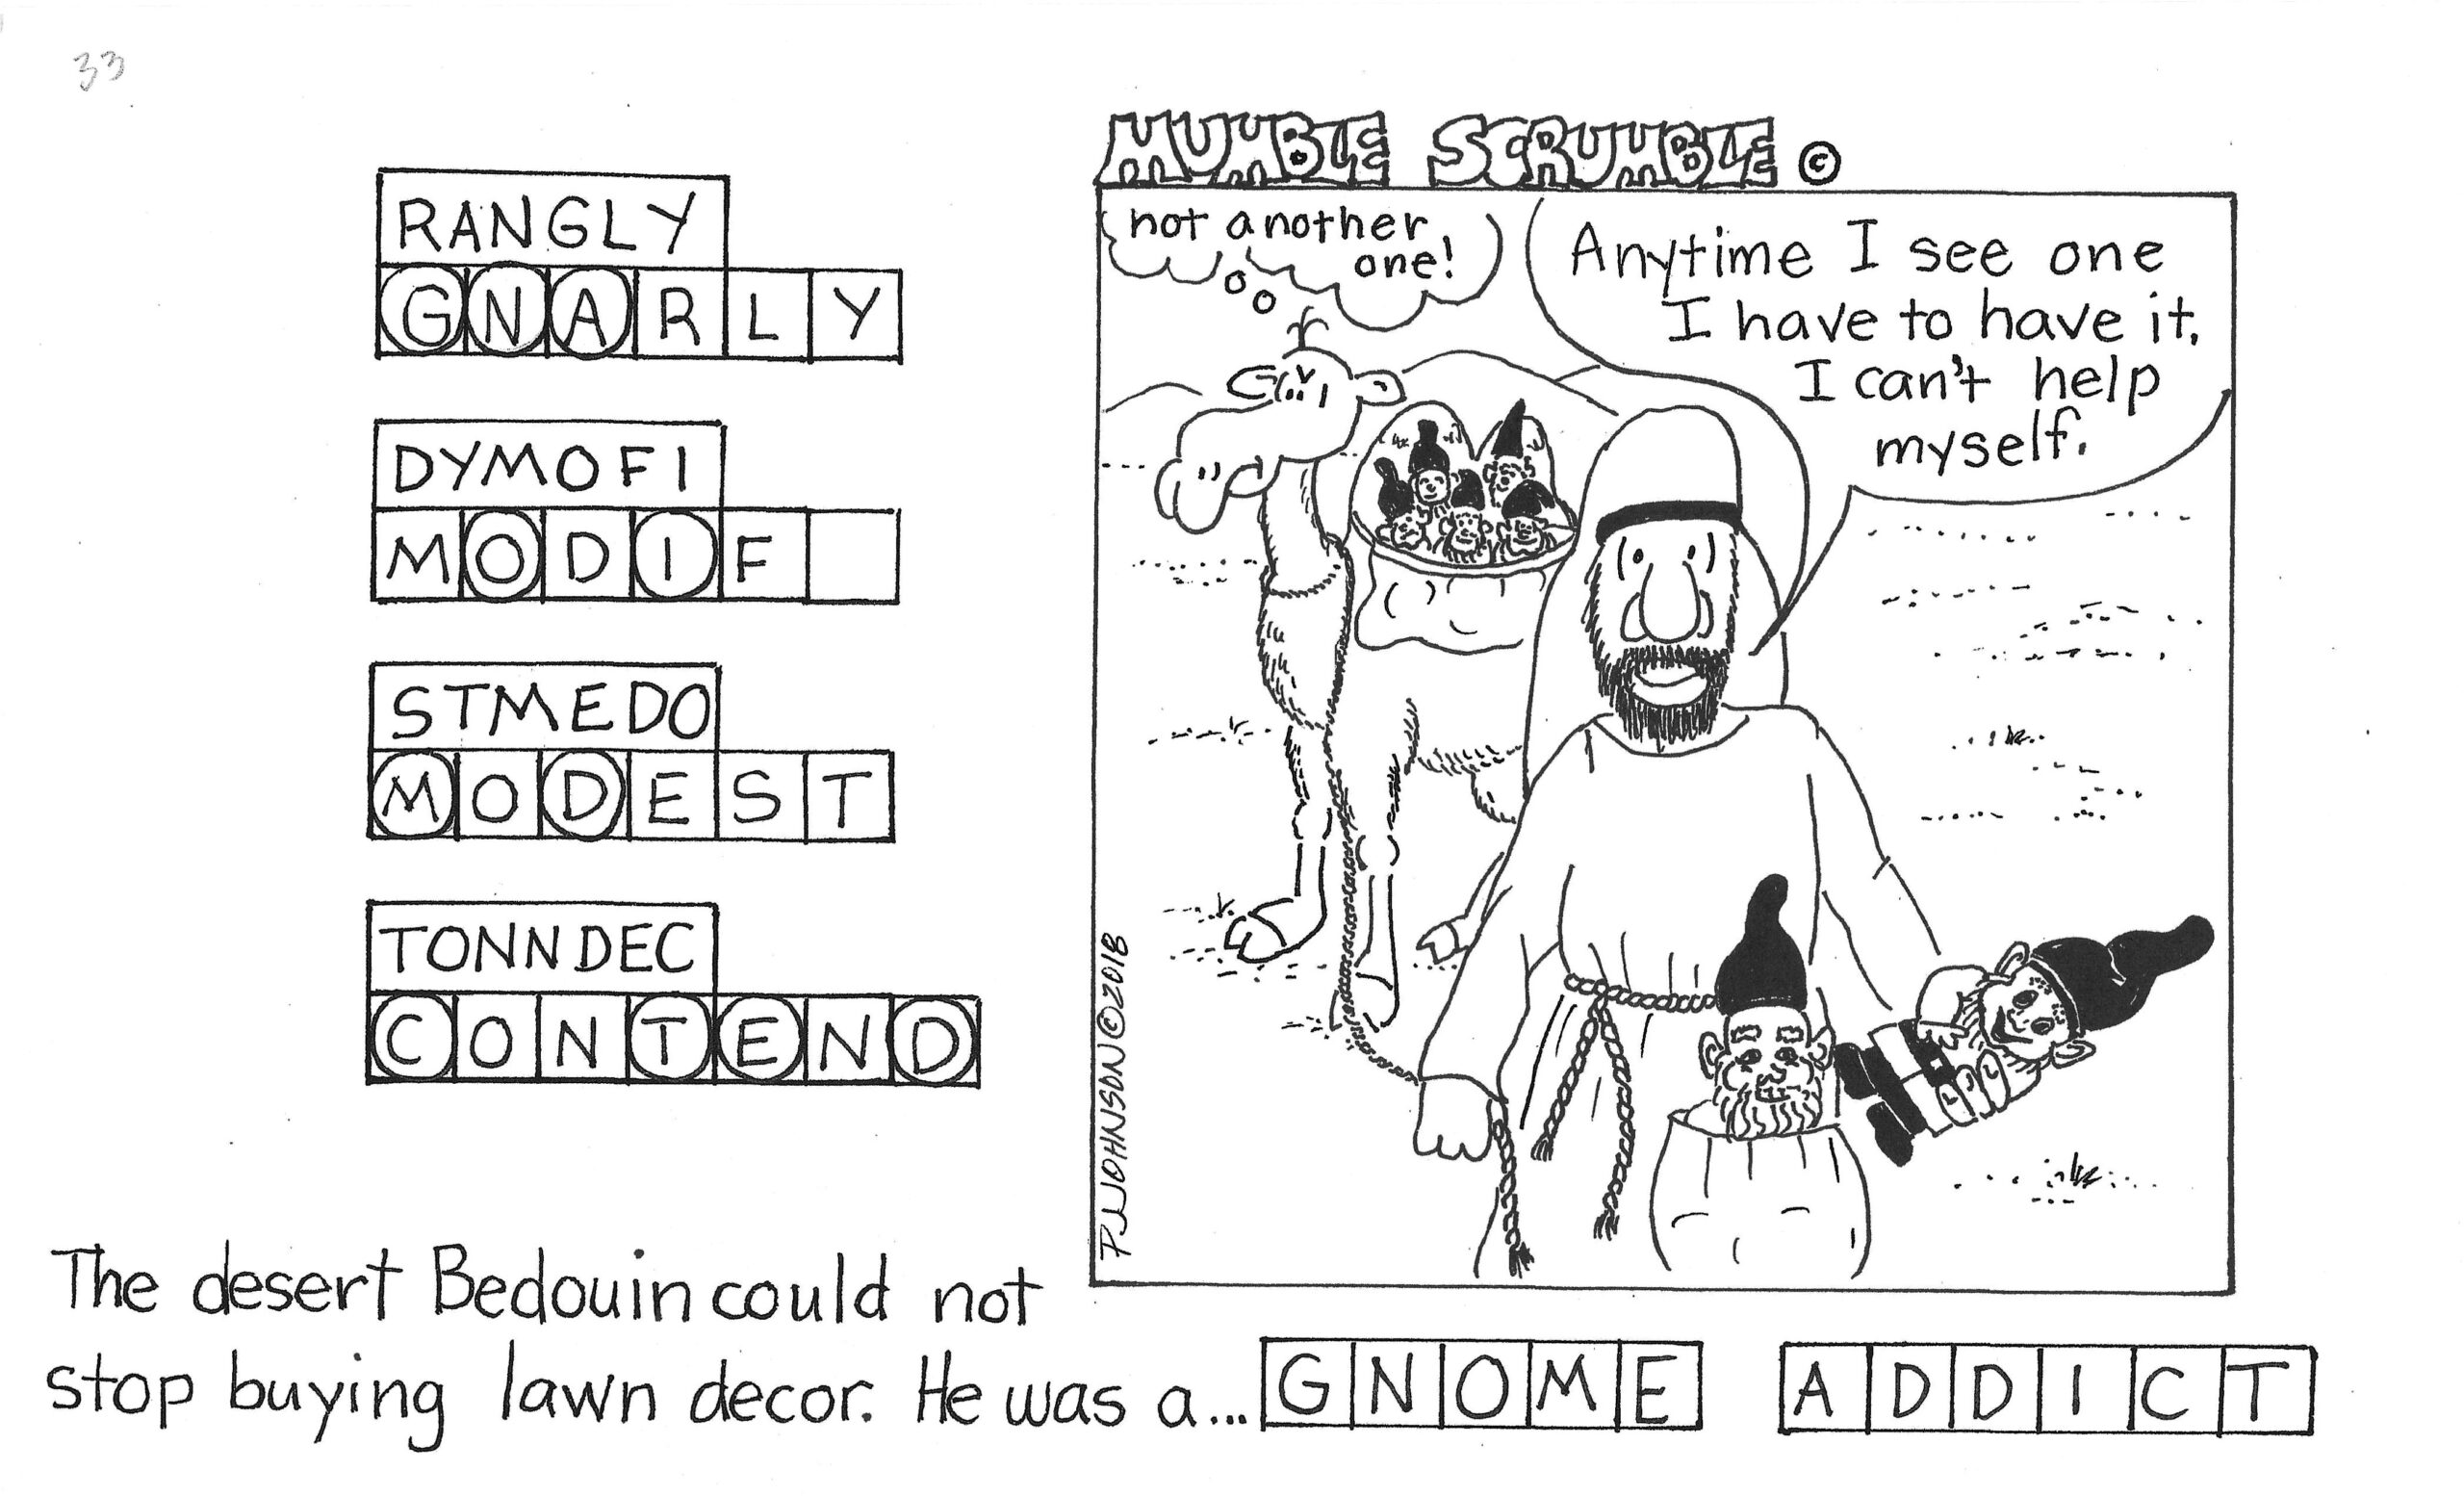 33
MUMBLE SCRUMBLE ©
RANGLY
GNARLY
DYMOFI
MODIF
STMEDO
MODEST
TONNDEC
CONTEND
not another
one!
Anytime I see one
I have to have it,
I can't help
myself.
PJJOHNSON©2018
The desert Bedouin could not
stop buying lawn decor. He was a... GNOME ADDICT